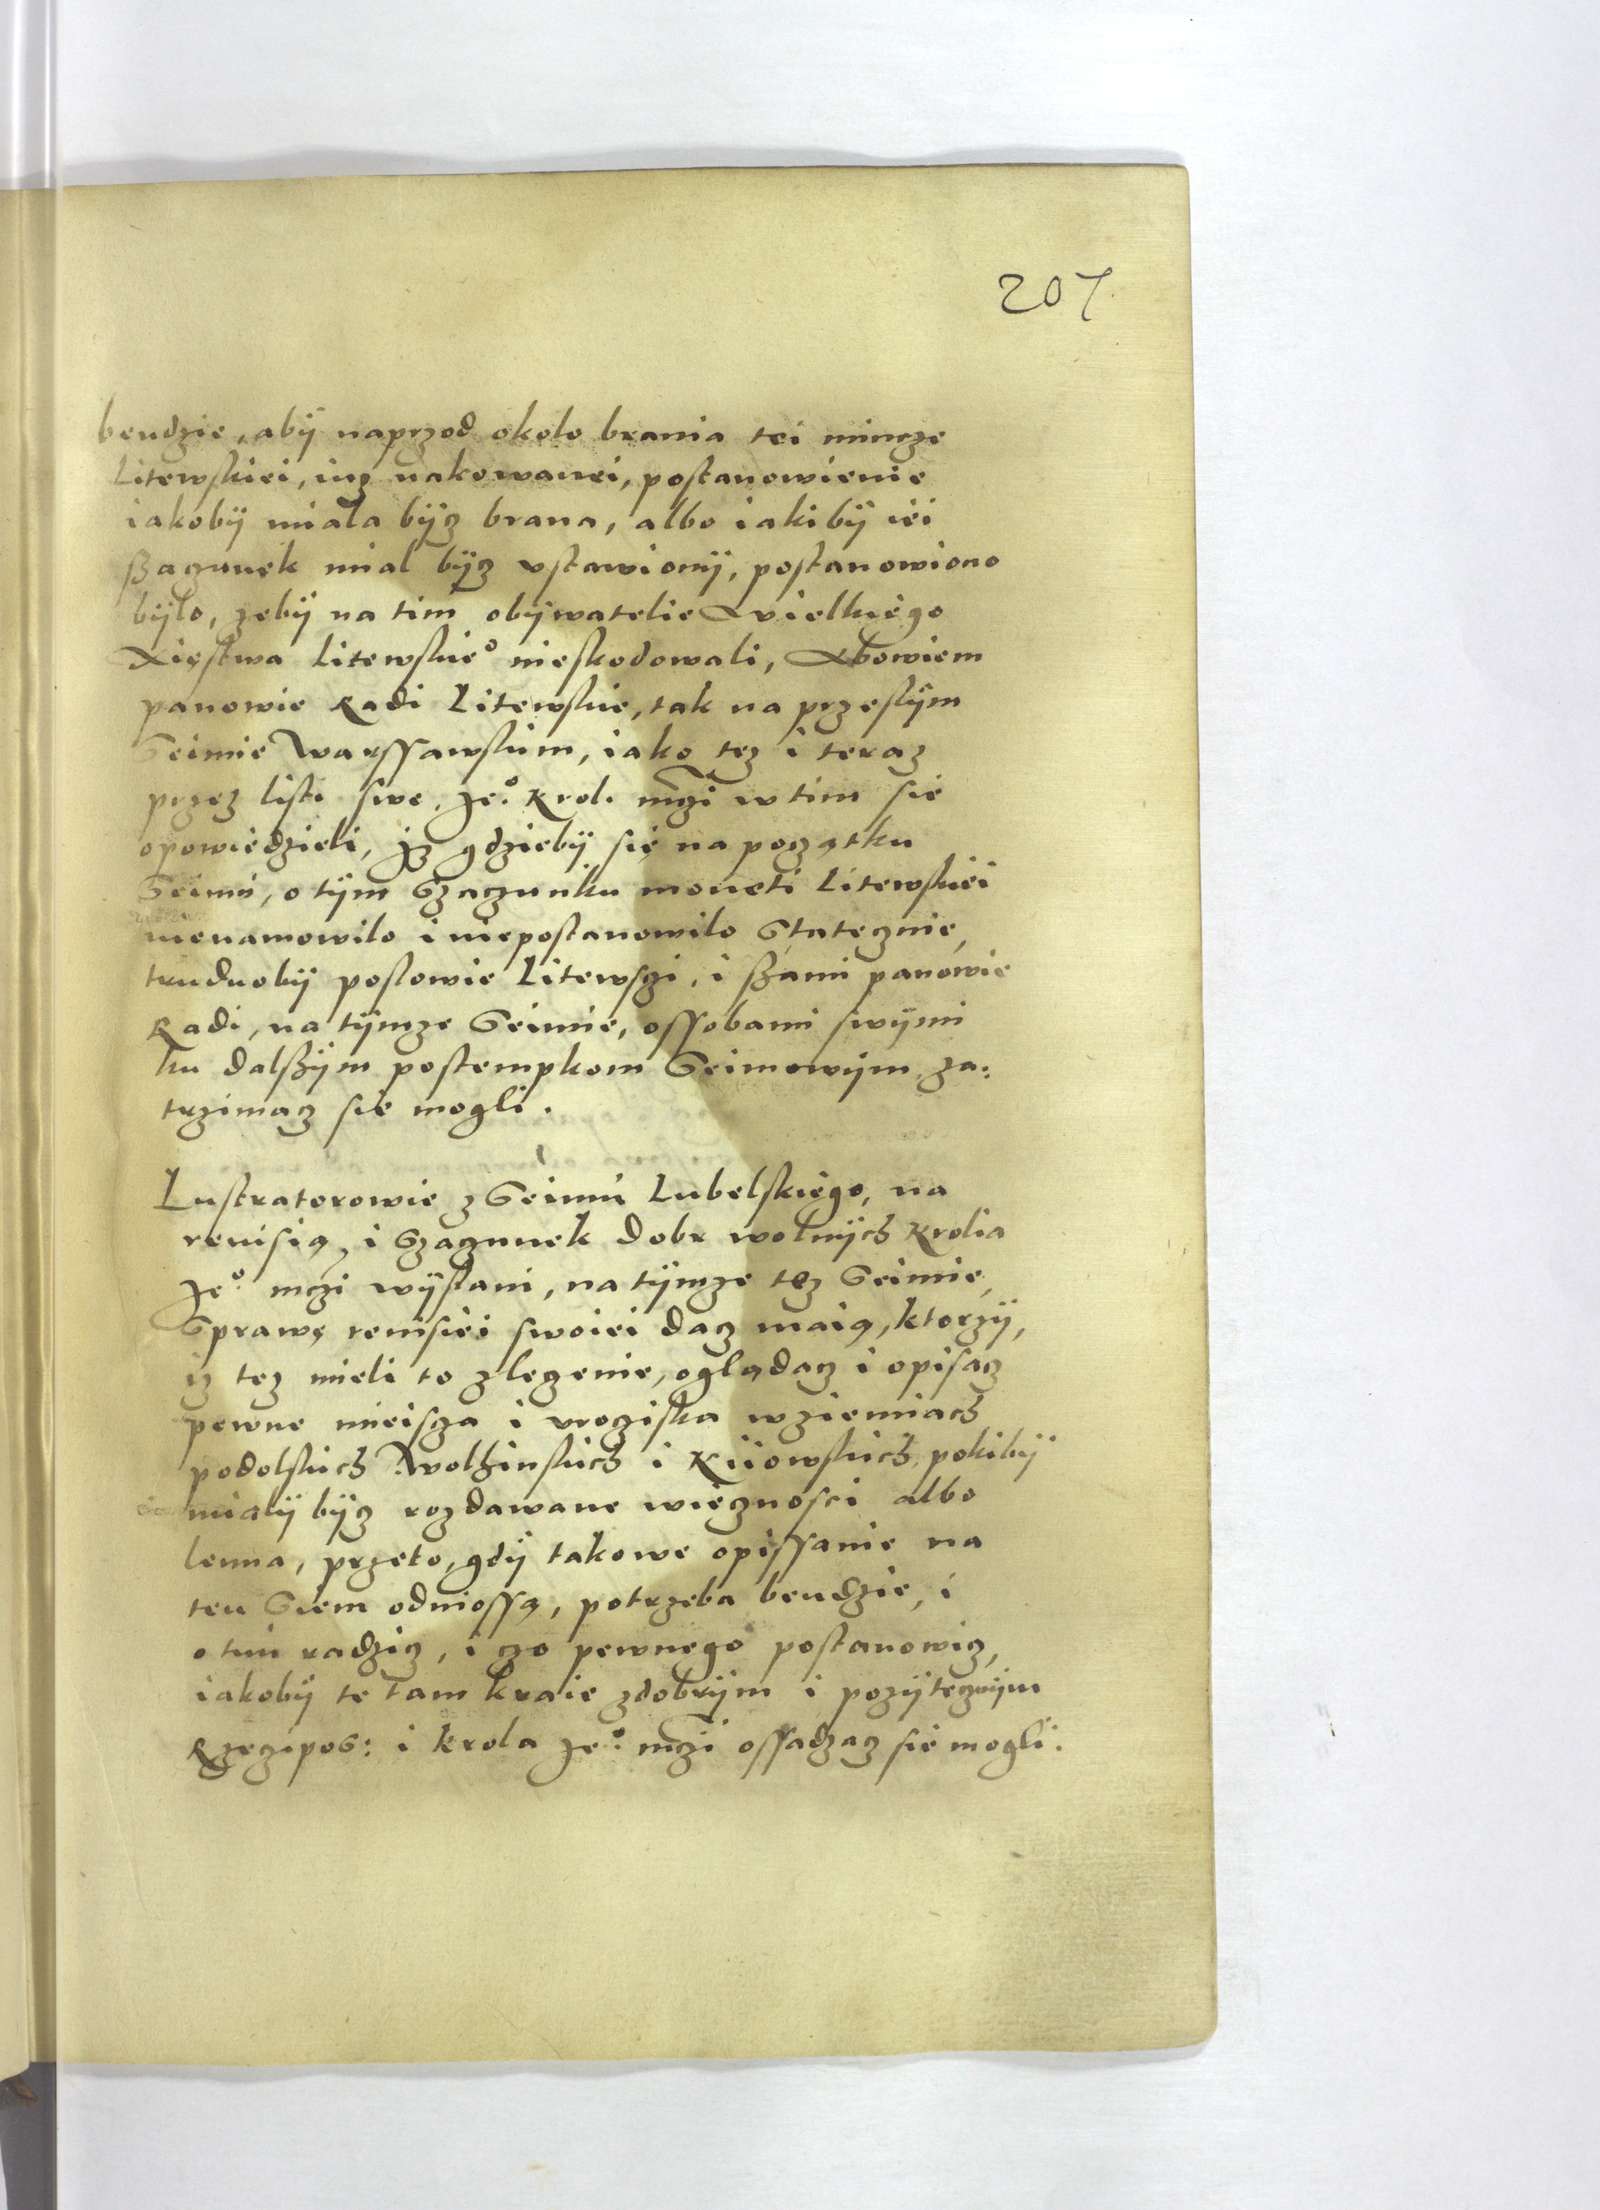 207
bendzie, abÿ naprzod okolo brania tei mincze
Litewskiei, iuz nakowanei, postanowienie
iakobÿ miala bÿcz brana, albo iakibÿ iei
szaczunek mial bÿcz vstawionÿ, postanowiono
bÿlo, zebÿ na tim obÿwatelie Wielkiego
Xięstwa Litewskieº nieskodowali, Abowiem
panowie Radi Litewskie, tak na przeslÿm
Seimie Warssawskim, iako tez i teraz
przez listi swe, Jeº: Krol. mczi w tim sie
opowiedzieli, Jz gdziebÿ się na początku
Seimu, o tÿm Szaczunku moneti Litewskiei
nienamowilo i niepostanowilo Statecznie,
trudnobÿ poslowie Litewsci, i szami panowie
Radi, na tÿmze Seimie, ossobami swÿmi
ku dalszÿm postempkom Seimowÿm za:
trzimacz sie mogli.
Lustratorowie z Seimu Lubelskiego, na
reuisią, i Szaczunek dobr wolnÿch Krolia
Jeº mczi wÿslani, na tÿmze tez Seimie,
Sprawę reuisiei swoiei dacz maią, ktorzÿ,
iz tez mieli to zleczenie, oglądacz i opisacz
pewne mieiscza i vrocziska w ziemiach
podolskich Wolhinskich i Kiiowskich, pokibÿ
mialÿ bÿcz rozdawane wiecznosci albo
lenna, przeto, gdÿ takowe opissanie na
ten Siem odniossą, potrzeba bendzie, i
o tim radzicz, i czo pewnego postanowicz,
iakobÿ te tam kraie zdobrÿm i pozÿtecznÿm
Rzeczipos: i krola Jeº: mczi ossadzacz sie mogli.